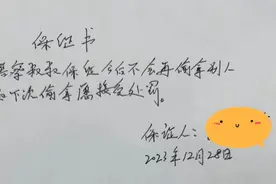 保证书
警察叔叔保证今后不会再偷拿别人
下次偷拿愿接受处罚。
保证人:
2023年12月28日